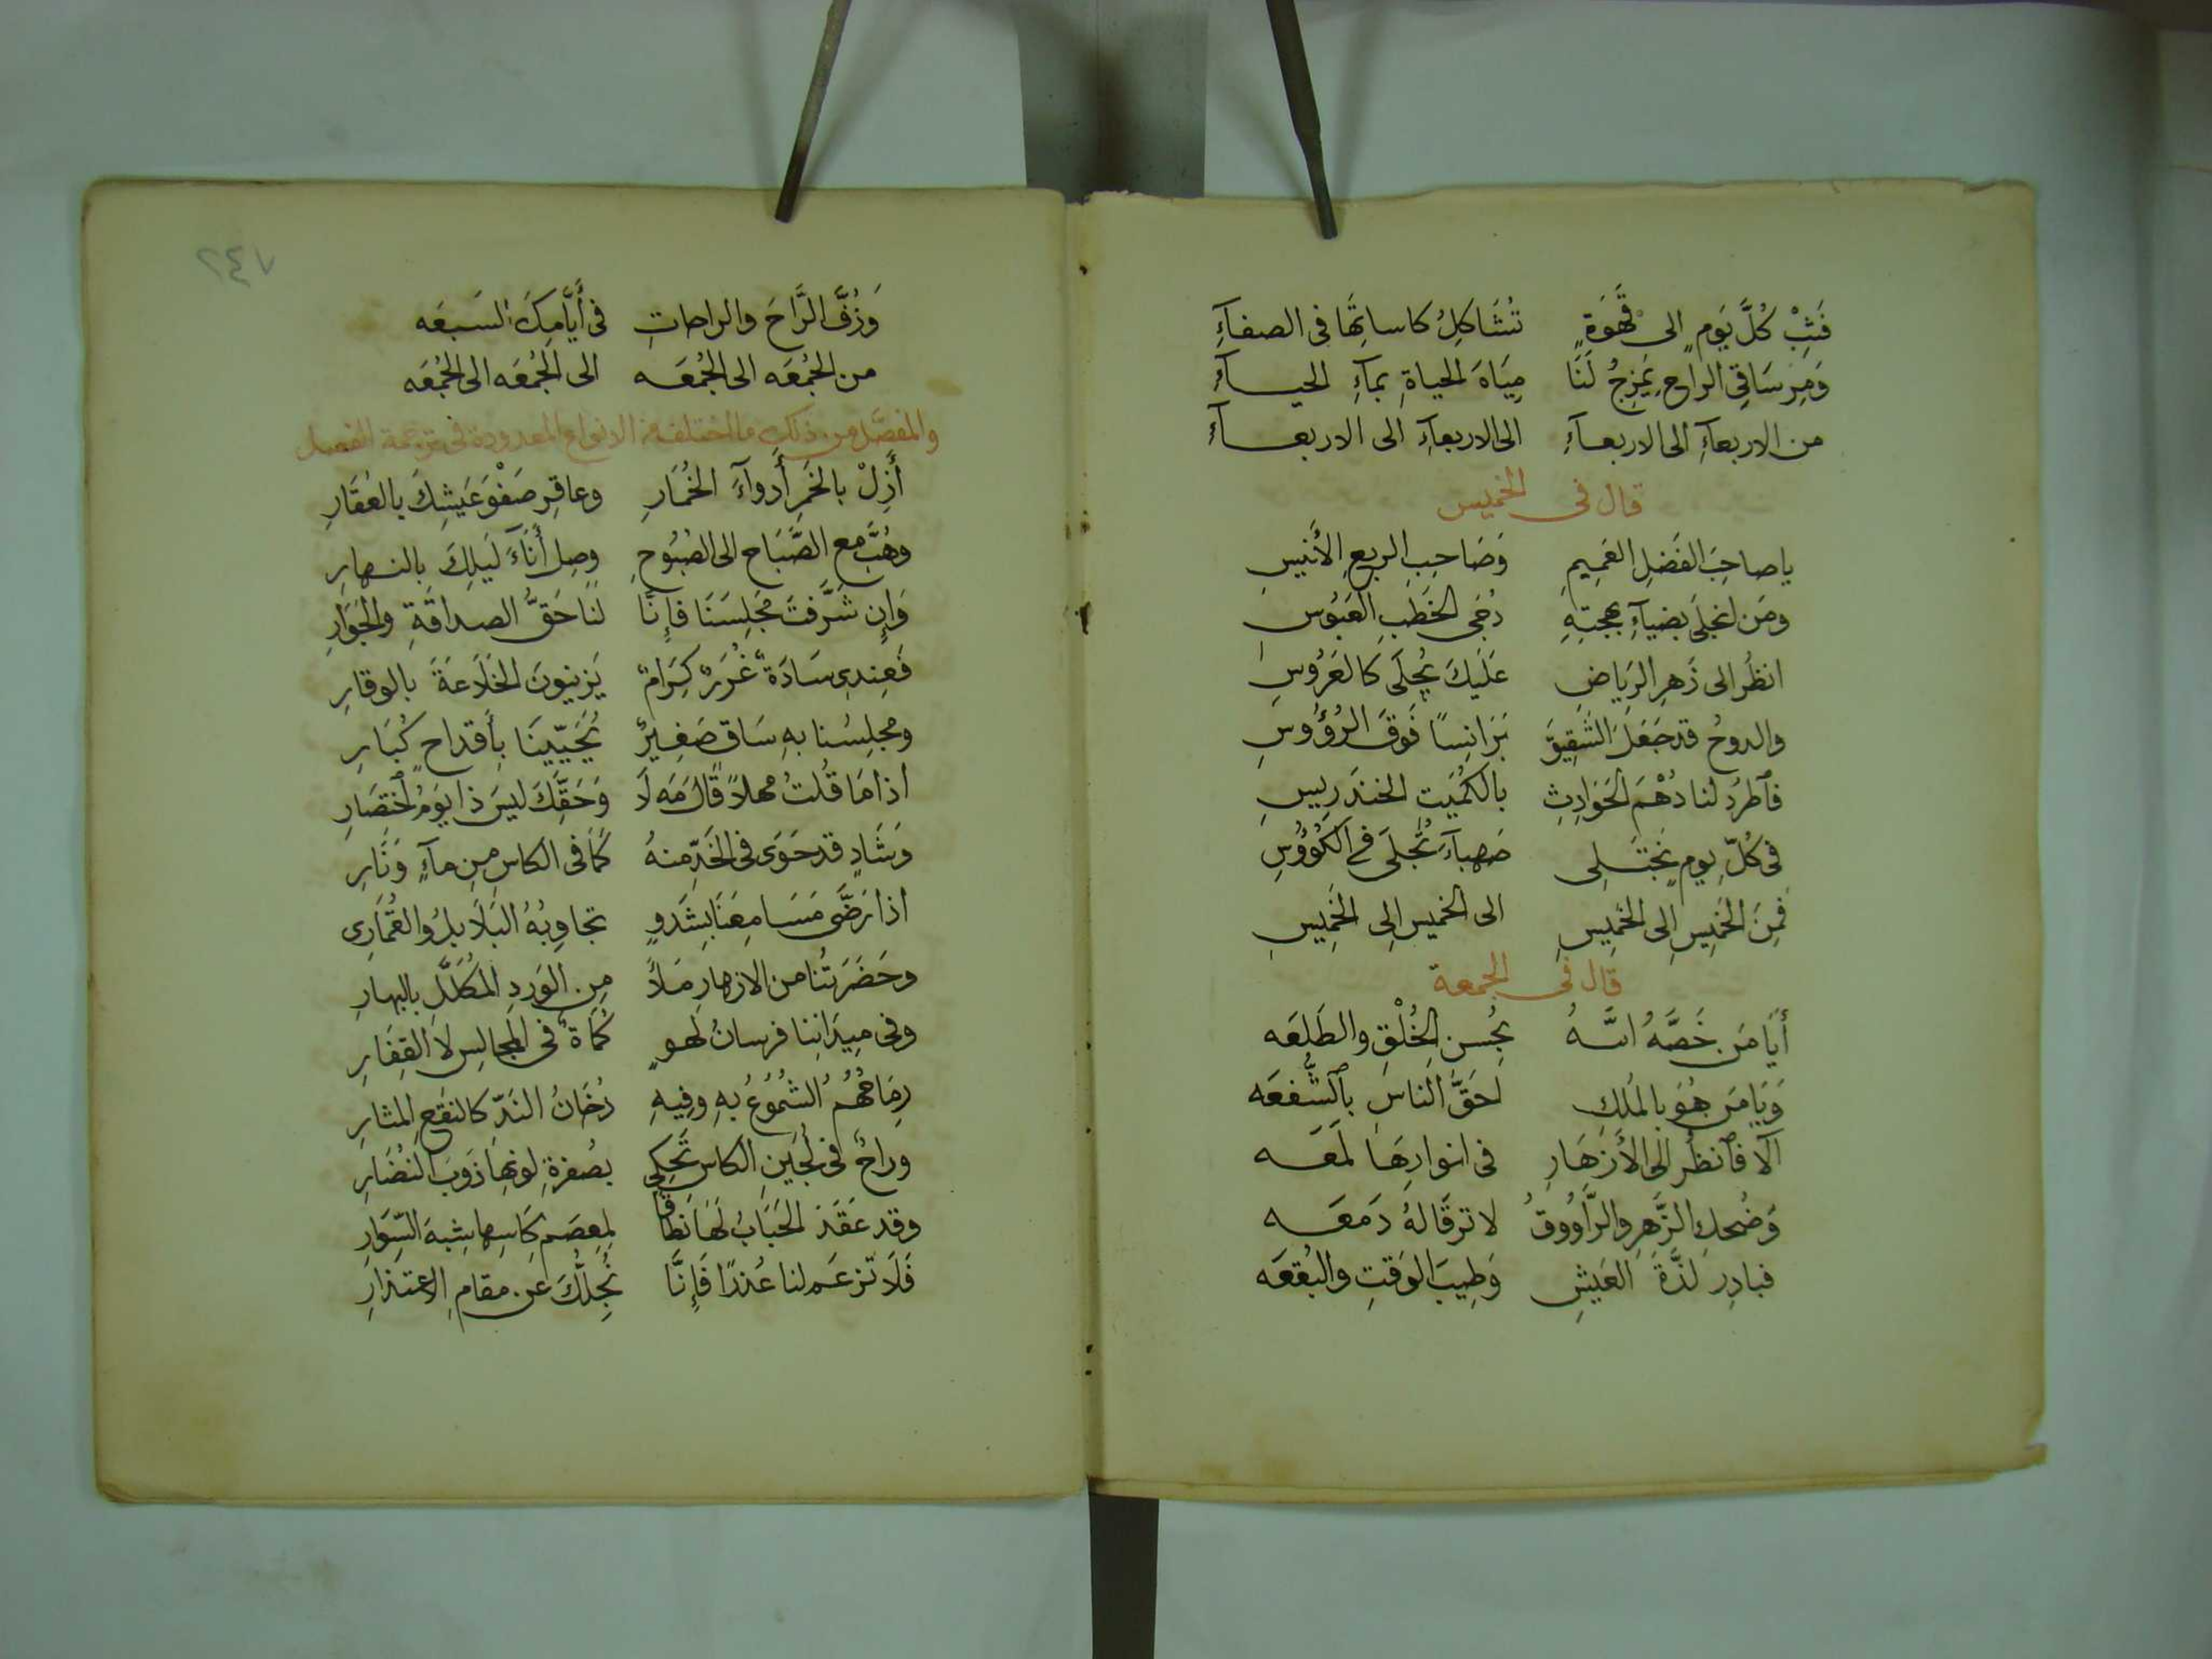 فَثِبْ كُلَّ يَومٍ الى قَهْوَةٍ تُشَاكِلُ كاساتِهَا فى الصفآءِ
وَمِرْ سَاقِىَ الراحِ يَمزِجُ لَنَا مِيَاهَ الحياةِ بمآءِ الحيــآءِ
من الاربعآءِ الى الاربعــآءِ الى الاربعآءِ الى الاربعــآءِ
قال فى الخميس
ياصاحِبَ الفَضلِ العَمِيمِ وَصَاحِبِ الربعِ الأَنيسِ
ومَن انجلَى بضيآءِ بهجتِهِ دُجَى الخَطبِ العَبُوسِ
انظُر الى زَهرِ الرَيَاضِ عَلَيكَ يُجلَى كالعَرُوسِ
والدوحُ قد جَعَلَ الشَقِيقَ بَرَانِسًا فَوقَ الرُؤُوسِ
فَاطرُد لنا دُهْمَ الحَوَادِثِ بالكُمَيَت الخندَرِيسِ
فى كُلِّ يومٍ نَجتَــلِى صَهبآءَ تُجلَى فى الكُؤُوسِ
فمِنَ الخَمِيسِ الِى الخَمِيسِ الى الخميس الِى الخَمِيسِ
قال فى الجمعة
أَيَا مَن خَصَّهُ اللــهُ بِحُسنِ الخُلْقِ والطَلعَه
وَيَا مَن هُوَ بالمُلكِ احَقُّ الناسِ بِالشُّفعَه
أَلَا فَانظُر الَى الأَزهَارِ فى انوارِهَا لَمعَــه
وَضُحكِ الزَّهرِ والرَّاوُوقُ لا ترقَا لهُ دَمعَــه
فبادِر لَذَّةَ العَيشِ وَطِيبَ الوَقتِ والبُقعَه
٢٤٧
وَزُفَّ الرَّاحَ والراحاتِ فى أَيَّامِكَ السَبعَه
من الجُمْعَه الى الجُمْعَــه الى الجُمْعَه الى الجُمْعَه
والمفصَّل من ذلك ما اختلف من الانواع المعدودة فى ترجمة الفصل
أَزِلْ بالخَمرِ أَدوآءَ الخُمَارِ وعاقِر صَفْوَ عَيشِكَ بالعُقَارِ
وهُبَّ مع الصَّبَاح الى الصَبُوحِ وصِل أَنَآءَ لَيلِكَ بالنــهارِ
وَاِن شَرَّفتَ مَجلِسَنَا فإِنَّا لَنا حَقُّ الصداقَةِ والجَوَارِ
فَعِندِى سَادَةٌ غُرَرٌ كِرَامٌ يَزينُونَ الخَلَاعَةَ بالوقارِ
ومجلِسُنا بهِ سَاقٍ صَغِيرٌ يُحَيِّينَا بِأَقداحٍ كُبَارِ
اذا مَا قُلتُ مهلاً قَالَ مَه لَا وَحَقِّكَ ليسَ ذا يَومُ اختصَارِ
وَشَادٍ قد حَوَى فى الخَدِّ مِنهُ كَمَا فى الكاسِ مِن مآءٍ وَنَارِ
اذا رَضَّى مَسَامِعَنَا بِشَدوٍ تجاوِبُهُ البَلَابلُ والقُمَارِى
وحَضرَتُنا من الازهارِ مَلأَ مِن الوَردِ المُكَلَّلِ بالبهارِ
وفى مِيدَانِنا فرسانُ لَهــوٍ كُمَاةٌ فى المجالِسِ لَا القِفَارِ
رِمَاحُهُمُ الشُمُوعُ بهِ وفِيهِ دُخَانُ النَدِّ كالنَقعِ المثارِ
وراحٌ فى لُجَينِ الكاسِ تَحكِى بصُفرةِ لونِها ذَوبَ النُضَارِ
وقد عَقَدَ الحَبَابُ لَهَا نَطاقا لِمِعصَم كَاسِها شِبهَ السِّوَارِ
فَلَا تَزعَم لنا عُذرًا فَإِنَّا نُجِلُّكَ عن مقامِ الاعتذارِ